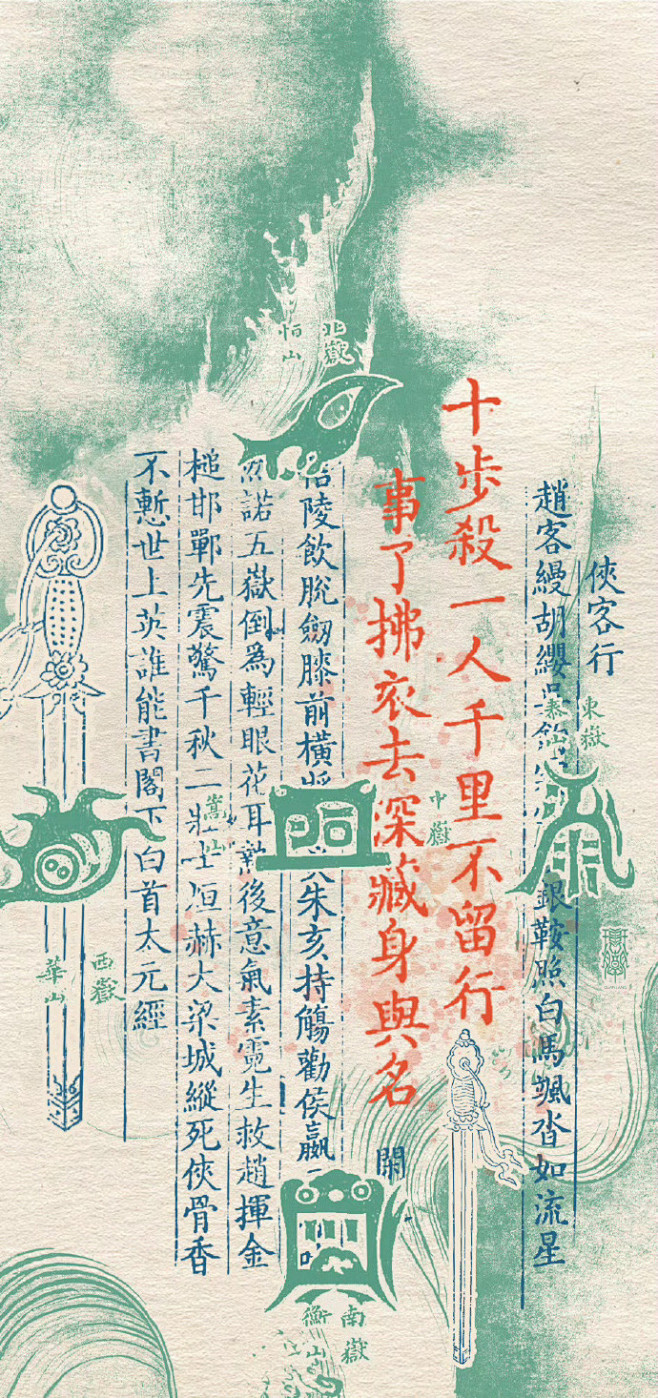 俠客行
趙客縵胡纓 銀鞍照白馬颯沓如流星
十步殺一人千里不留行
事了拂衣去深藏身與名
閑
陵飲脫劒膝前橫將 朱亥持觴勸侯嬴
諾五嶽倒為輕眼花耳熱後意氣素霓生救趙揮金
槌邯鄲先震驚千秋二壯士烜赫大梁城縱死俠骨香
不慙世上英誰能書閣下白首太元經
北嶽
恒山
東嶽
泰山
中嶽
嵩山
西嶽
華山
南嶽
衡山